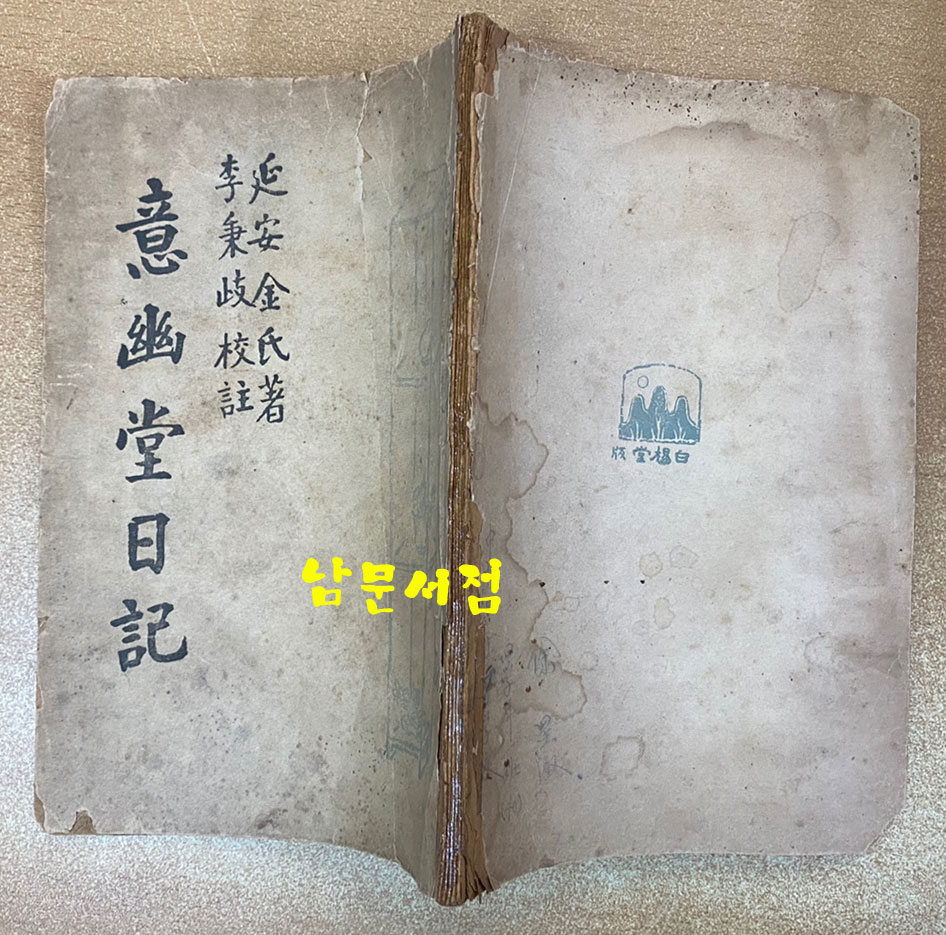 延安金氏著
李秉歧校註
意幽堂日記
남문서점
白楊堂版